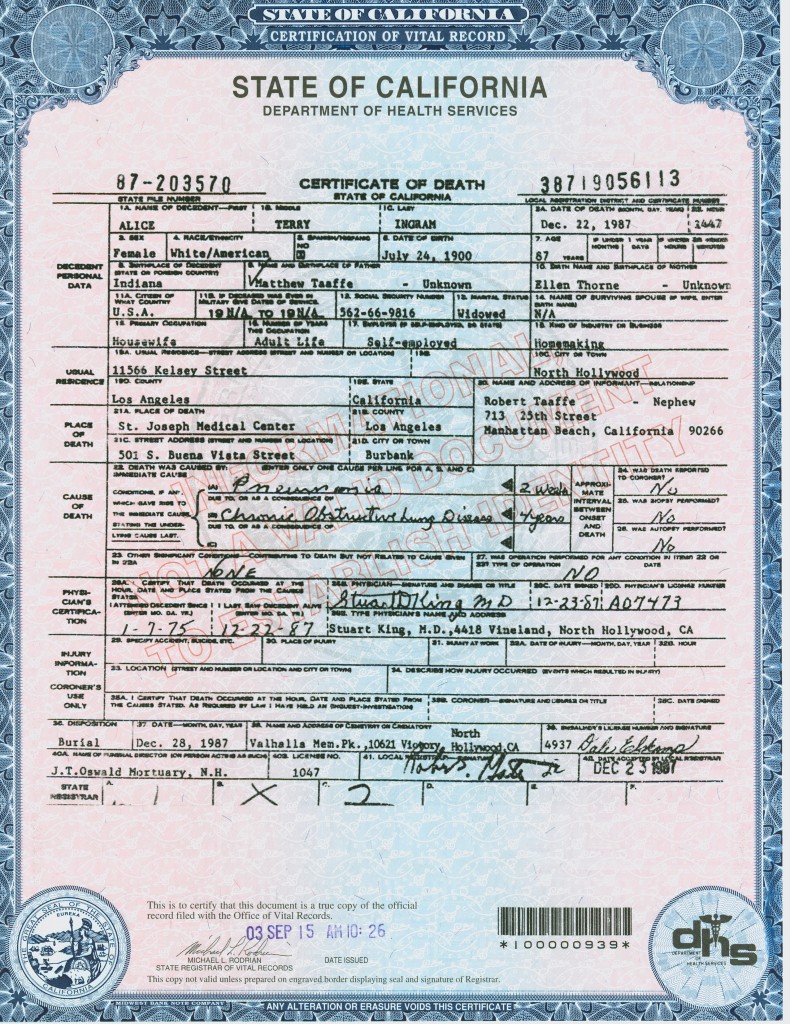 STATE OF CALIFORNIA
CERTIFICATION OF VITAL RECORD
STATE OF CALIFORNIA
DEPARTMENT OF HEALTH SERVICES
87-203570 CERTIFICATE OF DEATH 38719056113
STATE FILE NUMBER STATE OF CALIFORNIA LOCAL REGISTRATION DISTRICT AND CERTIFICATE NUMBER
1A. NAME OF DECEDENT—FIRST 1B. MIDDLE 1C. LAST 2A. DATE OF DEATH (MONTH, DAY, YEAR) 2B. HOUR
ALICE TERRY INGRAM Dec. 22, 1987 1447
3. SEX 4. RACE/ETHNICITY 5. SPANISH/HISPANIC 6. DATE OF BIRTH 7. AGE IF UNDER 1 YEAR
NO MONTHS DAYS HOURS MINUTES
Female White/American July 24, 1900 87 YEARS
DECEDENT PERSONAL DATA
8. BIRTHPLACE OF DECEDENT (STATE OR FOREIGN COUNTRY) 9. NAME AND BIRTHPLACE OF FATHER 10. BIRTH NAME AND BIRTHPLACE OF MOTHER
Indiana Matthew Taaffe - Unknown Ellen Thorne - Unknown
11A. CITIZEN OF WHAT COUNTRY 11B. IF DECEASED WAS EVER IN MILITARY GIVE DATES OF SERVICE. 12. SOCIAL SECURITY NUMBER 13. MARITAL STATUS 14. NAME OF SURVIVING SPOUSE (IF WIFE, ENTER BIRTH NAME)
U.S.A. 19 N/A TO 19 N/A 562-66-9816 Widowed N/A
15. PRIMARY OCCUPATION 16. NUMBER OF YEARS THIS OCCUPATION 17. EMPLOYER (IF SELF-EMPLOYED, SO STATE) 18. KIND OF INDUSTRY OR BUSINESS
Housewife Adult Life Self-employed Homemaking
USUAL RESIDENCE
19A. USUAL RESIDENCE—STREET ADDRESS (STREET AND NUMBER OR LOCATION) 19B. 19C. CITY OR TOWN
11566 Kelsey Street North Hollywood
19D. COUNTY 19E. STATE 20. NAME AND ADDRESS OF INFORMANT—RELATIONSHIP
Los Angeles California Robert Taaffe - Nephew
PLACE OF DEATH
21A. PLACE OF DEATH 21B. COUNTY
St. Joseph Medical Center Los Angeles 713 25th Street
21C. STREET ADDRESS (STREET AND NUMBER OR LOCATION) 21D. CITY OR TOWN Manhattan Beach, California 90266
501 S. Buena Vista Street Burbank
CAUSE OF DEATH
22. DEATH WAS CAUSED BY: (ENTER ONLY ONE CAUSE PER LINE FOR A, B, AND C)
IMMEDIATE CAUSE
CONDITIONS, IF ANY, WHICH GAVE RISE TO THE IMMEDIATE CAUSE, STATING THE UNDERLYING CAUSE LAST.
(A) Pneumonia 2 weeks
DUE TO, OR AS A CONSEQUENCE OF
(B) Chronic Obstructive Lung Disease 4 years
DUE TO, OR AS A CONSEQUENCE OF
(C)
APPROXIMATE INTERVAL BETWEEN ONSET AND DEATH
24. WAS DEATH REPORTED TO CORONER?
No
25. WAS BIOPSY PERFORMED?
No
26. WAS AUTOPSY PERFORMED?
No
23. OTHER SIGNIFICANT CONDITIONS—CONTRIBUTING TO DEATH BUT NOT RELATED TO CAUSE GIVEN IN 22A
NONE
27. WAS OPERATION PERFORMED FOR ANY CONDITION IN ITEMS 22 OR 23? TYPE OF OPERATION DATE
NO
PHYSICIAN'S CERTIFICATION
28A. I CERTIFY THAT DEATH OCCURRED AT THE HOUR, DATE AND PLACE STATED FROM THE CAUSES STATED. 28B. PHYSICIAN—SIGNATURE AND DEGREE OR TITLE 28C. DATE SIGNED 28D. PHYSICIAN'S LICENSE NUMBER
Stuart King MD 12-23-87 A07473
I ATTENDED DECEDENT SINCE (ENTER MO. DA. YR.) I LAST SAW DECEDENT ALIVE (ENTER MO. DA. YR.) 28E. TYPE PHYSICIAN'S NAME AND ADDRESS
1-7-75 12-22-87 Stuart King, M.D.,4418 Vineland, North Hollywood, CA
INJURY INFORMATION
29. SPECIFY ACCIDENT, SUICIDE, ETC. 30. PLACE OF INJURY 31. INJURY AT WORK 32A. DATE OF INJURY—MONTH, DAY, YEAR 32B. HOUR
33. LOCATION (STREET AND NUMBER OR LOCATION AND CITY OR TOWN) 34. DESCRIBE HOW INJURY OCCURRED (EVENTS WHICH RESULTED IN INJURY)
CORONER'S USE ONLY
35A. I CERTIFY THAT DEATH OCCURRED AT THE HOUR, DATE AND PLACE STATED FROM THE CAUSES STATED. AS REQUIRED BY LAW I HAVE HELD AN (INQUEST-INVESTIGATION) 35B. CORONER—SIGNATURE AND DEGREE OR TITLE 35C. DATE SIGNED
36. DISPOSITION 37. DATE—MONTH, DAY, YEAR 38. NAME AND ADDRESS OF CEMETERY OR CREMATORY 39. EMBALMER'S LICENSE NUMBER AND SIGNATURE
Burial Dec. 28, 1987 Valhalla Mem.Pk.,10621 Victory, North Hollywood,CA 4937
40A. NAME OF FUNERAL DIRECTOR (OR PERSON ACTING AS SUCH) 40B. LICENSE NO. 41. LOCAL REGISTRAR—SIGNATURE 42. DATE ACCEPTED BY LOCAL REGISTRAR
J.T.Oswald Mortuary, N.H. 1047 DEC 23 1987
STATE REGISTRAR A. B. C. D. E. F.
1 X 2
INFORMATIONAL,
NOT A VALID DOCUMENT
TO ESTABLISH IDENTITY
This is to certify that this document is a true copy of the official
record filed with the Office of Vital Records.
03 SEP 15 AM 10: 26
MICHAEL L. RODRIAN DATE ISSUED
STATE REGISTRAR OF VITAL RECORDS
This copy not valid unless prepared on engraved border displaying seal and signature of Registrar.
*100000939*
THE GREAT SEAL OF THE STATE OF CALIFORNIA
EUREKA
dhs
DEPARTMENT OF HEALTH SERVICES
MIDWEST BANK NOTE COMPANY
ANY ALTERATION OR ERASURE VOIDS THIS CERTIFICATE